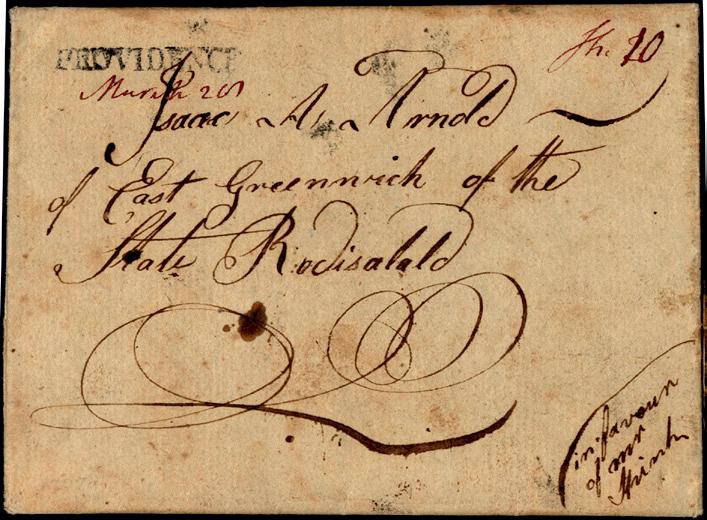 PROVIDENCE
Sh. 20
March 20
Isaac A. Arnold
of East Greennwich of the
State Rodisalald
in favour
of mr